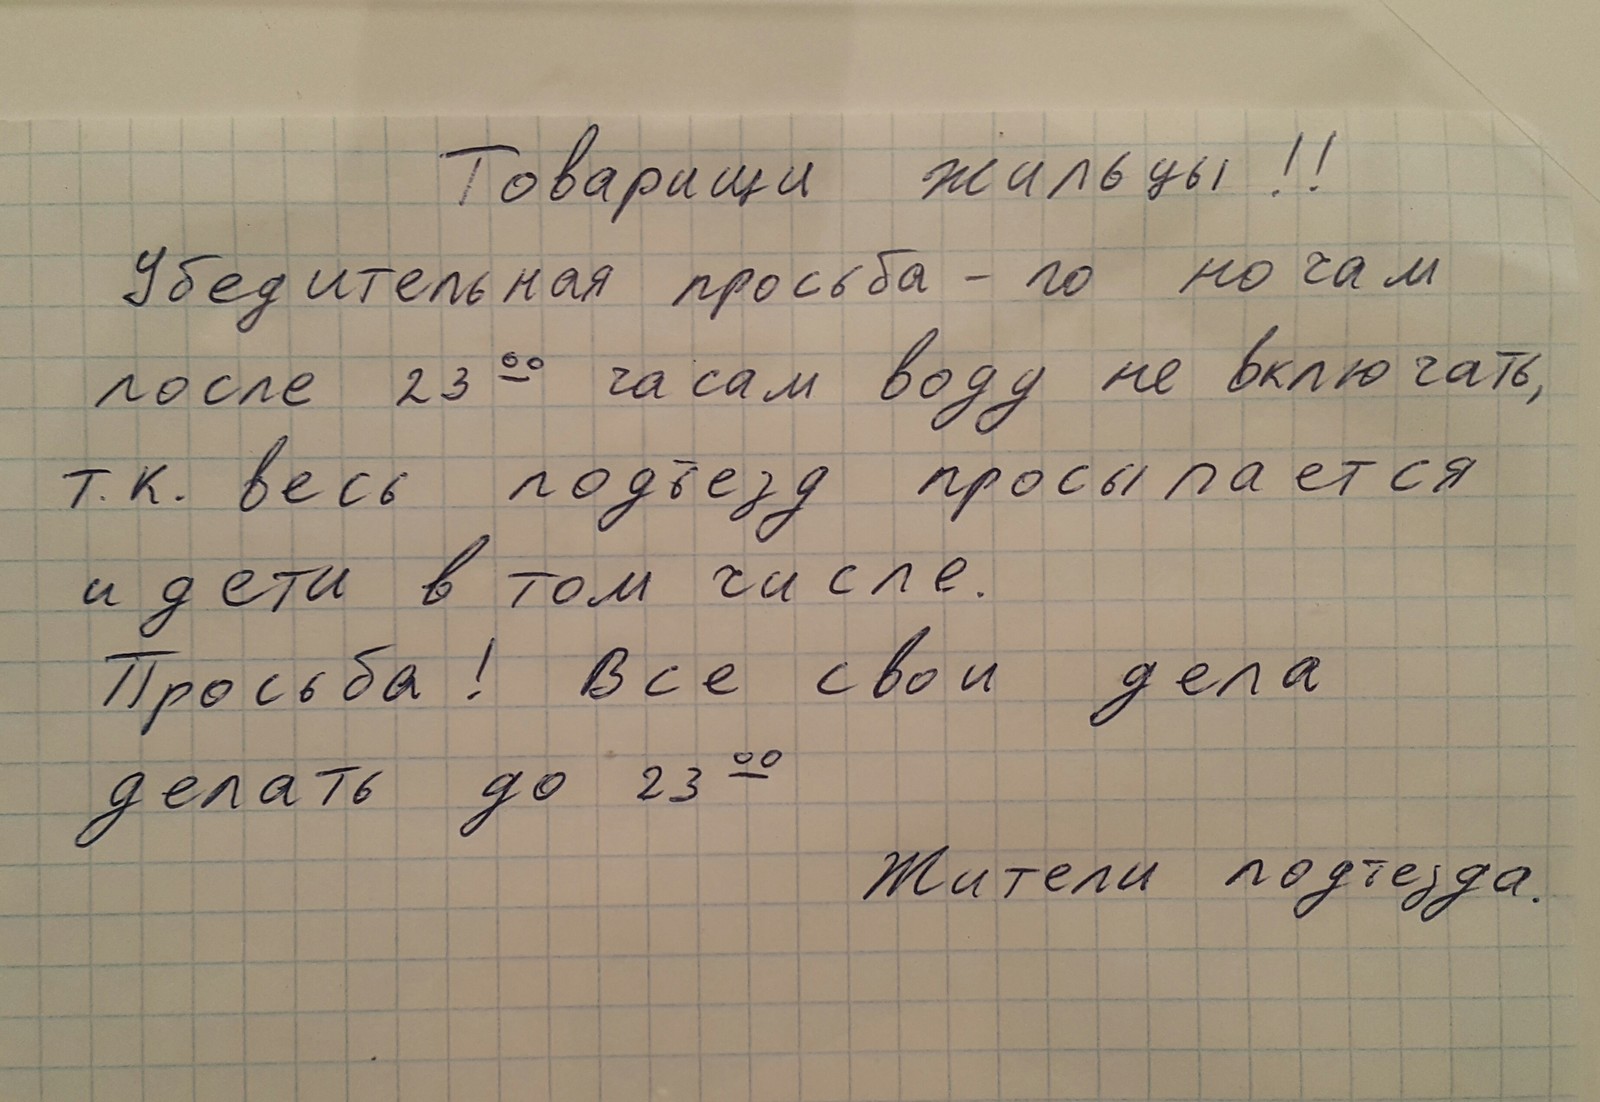 Товарищи жильцы!!
Убедительная просьба - по ночам
после 23⁰⁰ часам воду не включать,
т.к. весь подъезд просыпается
и дети в том числе.
Просьба! Все свои дела
делать до 23⁰⁰
Жители подъезда.